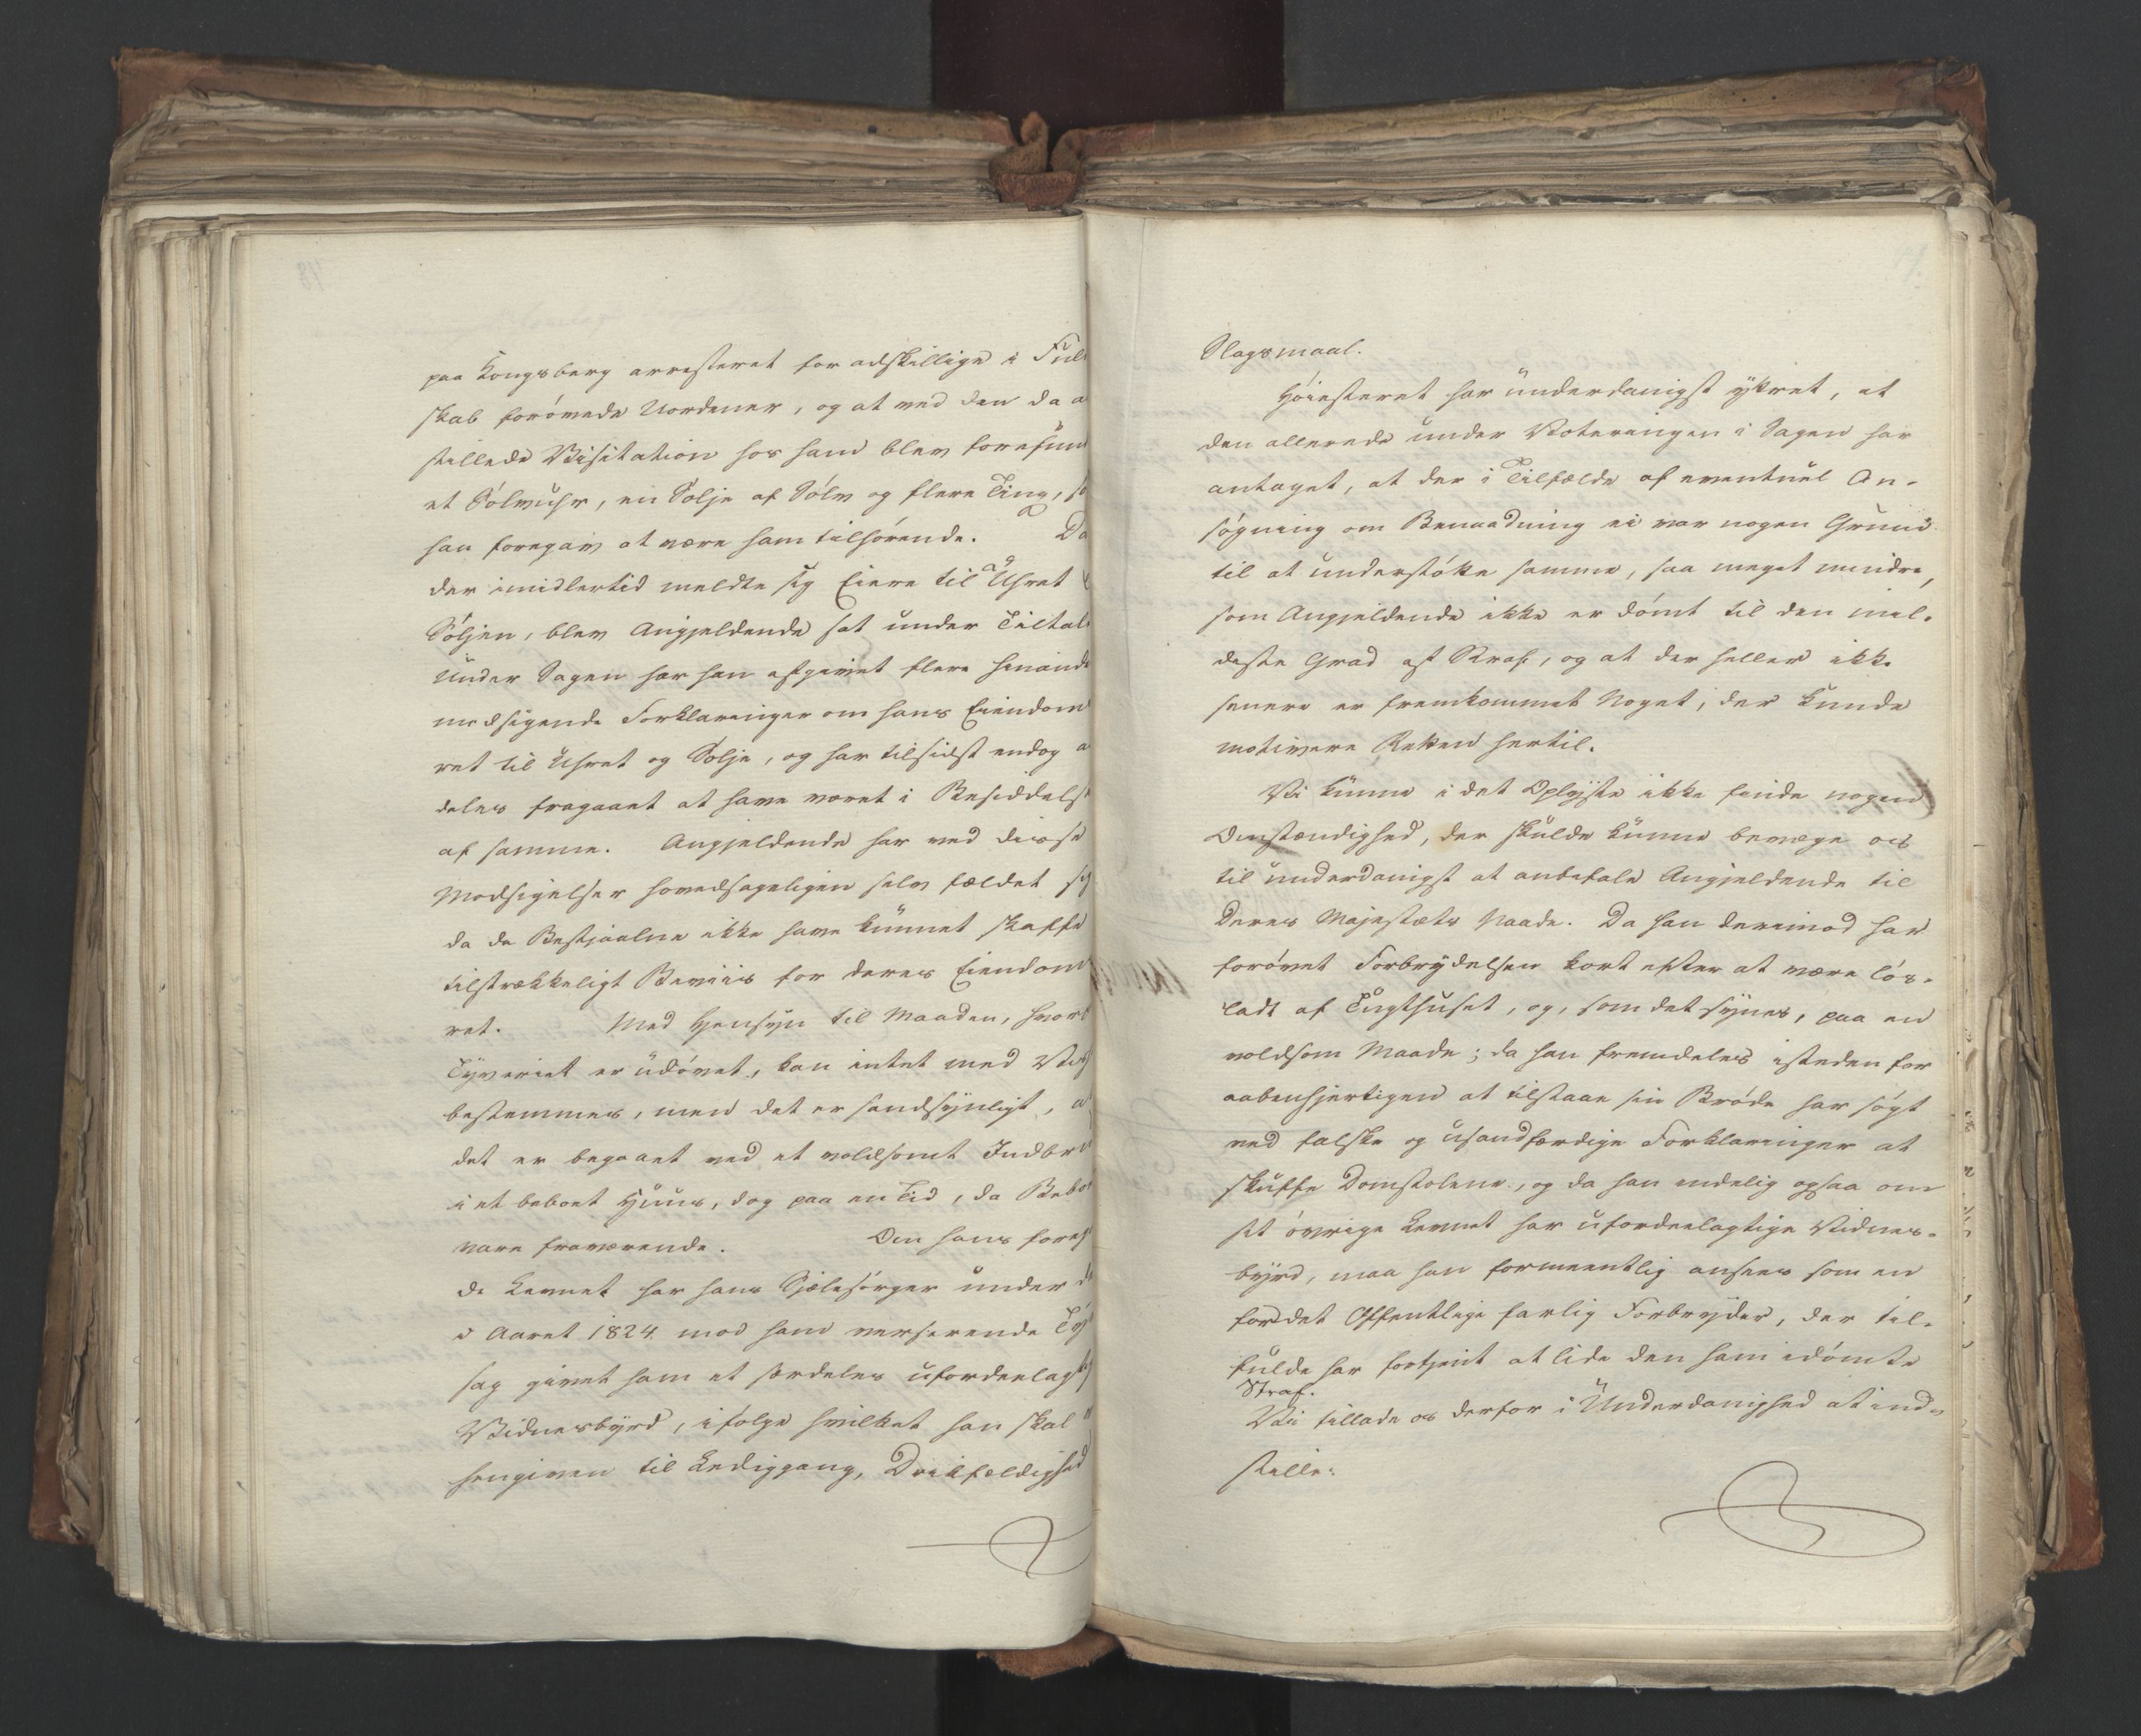 paa Kongsberg arresteret for adskillige i Fuld
skab forövede Uordener, og at ved den da a
stillede Visitation hos ham blev forefund
et Sölvuhr, en Sölje af Sölv og flere Ting, so
han foregav at være ham tilhörende. Da
der imidlertid meldte sig Eiere til Uhret
Söljen, blev Angjeldende sat under Tiltal
Under Sagen har han afgivet flere hinande
modsigende Forklaringer om hans Eiendoms
ret til Uhret og Sölje, og har tilsidst endog a
deles fragaaet at have været i Besiddelse
af samme. Angjeldende har ved disse
Modsigelser hovedsageligen selv fældet sig
da de Bestjaalne ikke have kunnet skaffe
tilstrækkeligt Beviis for deres Eiendoms
ret. Med Hensyn til Maaden, hvor
Tyveriet er udövet, kan intet med Vis
bestemmes, men det er sandsynligt, a
det er begaaet ved et voldsomt Indbru
i et beboet Huus, dog paa en Tid, da Bebo
vare fraværende. Om hans foreg
de Levnet har hans Sjælesörger under de
i Aaret 1824 mod ham verserende Ty
sag givet ham et særdeles ufordeelagtig
Vidnesbyrd, ifölge hvilket han skal
hengiven til Lediggang, Drikfældighed
Slagsmaal.
Höiesteret har underdanigst yttret, at
den allerede under Voteringen i Sagen har
antaget, at der i Tilfælde af eventuel An-
sögning om Benaadning ei var nogen Grund
til at understötte samme, saa meget mindre,
som Angjeldende ikke er dömt til den mil-
deste Grad af Straf, og at der heller ikke
senere er fremkommet Noget, der kunde
motivere Retten hertil.
Vi kunne i det Oplyste ikke finde nogen
Omstændighed, der skulde kunne bevæge os
til underdanigst at anbefale Angjeldende til
Deres Majestæts Naade. Da han derimod har
forövet Forbrydelsen kort efter at være lös-
ladt af Tugthuset, og, som det synes, paa en
voldsom Maade; da han fremdeles isteden for
aabenhjertigen at tilstaae sin Bröde har sögt
ved falske og usandfærdige Forklaringer at
skuffe Domstolene, og da han endelig ogsaa om
sit övrige Levnet har ufordeelagtige Vidnes-
byrd, maa han formeentlig ansees som en
for det Offentlige farlig Forbryder, der til-
fulde har fortjent at lide den ham idömte
Straf.
Vi tillade os derfor i Underdanighed at ind-
stille: